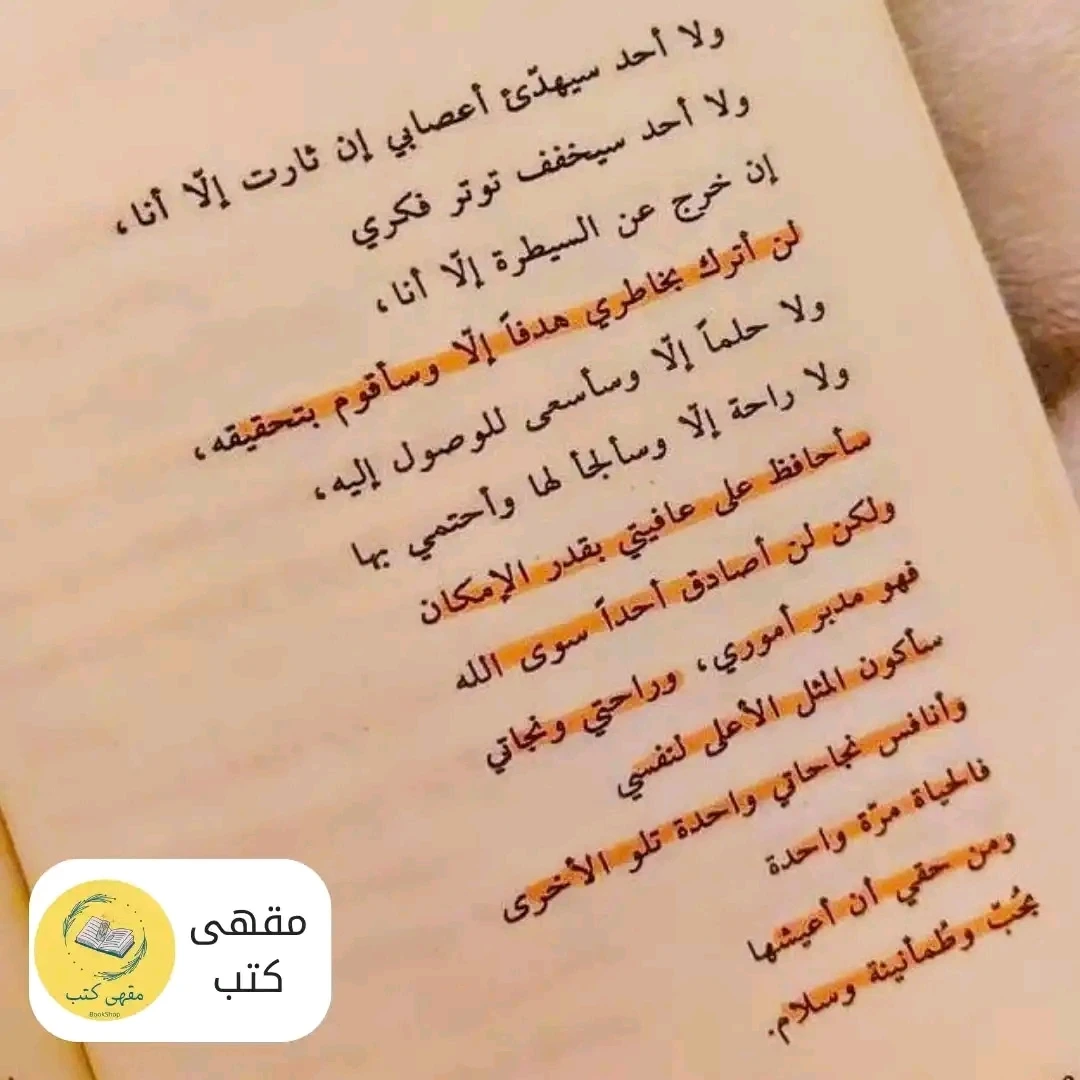 ولا أحد سيهدّئ أعصابي إن ثارت إلّا أنا،
ولا أحد سيخفف توتر فكري
إن خرج عن السيطرة إلّا أنا،
لن أترك بخاطري هدفاً إلّا وسأقوم بتحقيقه،
ولا حلماً إلّا وسأسعى للوصول إليه،
ولا راحة إلّا وسألجأ لها وأحتمي بها
سأحافظ على عافيتي بقدر الإمكان
ولكن لن أصادق أحداً سوى الله
فهو مدبر أموري، وراحتي ونجاتي
سأكون المثل الأعلى لنفسي
وأنافس نجاحاتي واحدة تلو الأخرى
فالحياة مرّة واحدة
ومن حقي أن أعيشها
بحُبّ وطُمأنينة وسلام.
مقهى
كتب
مقهى كتب
BookShop